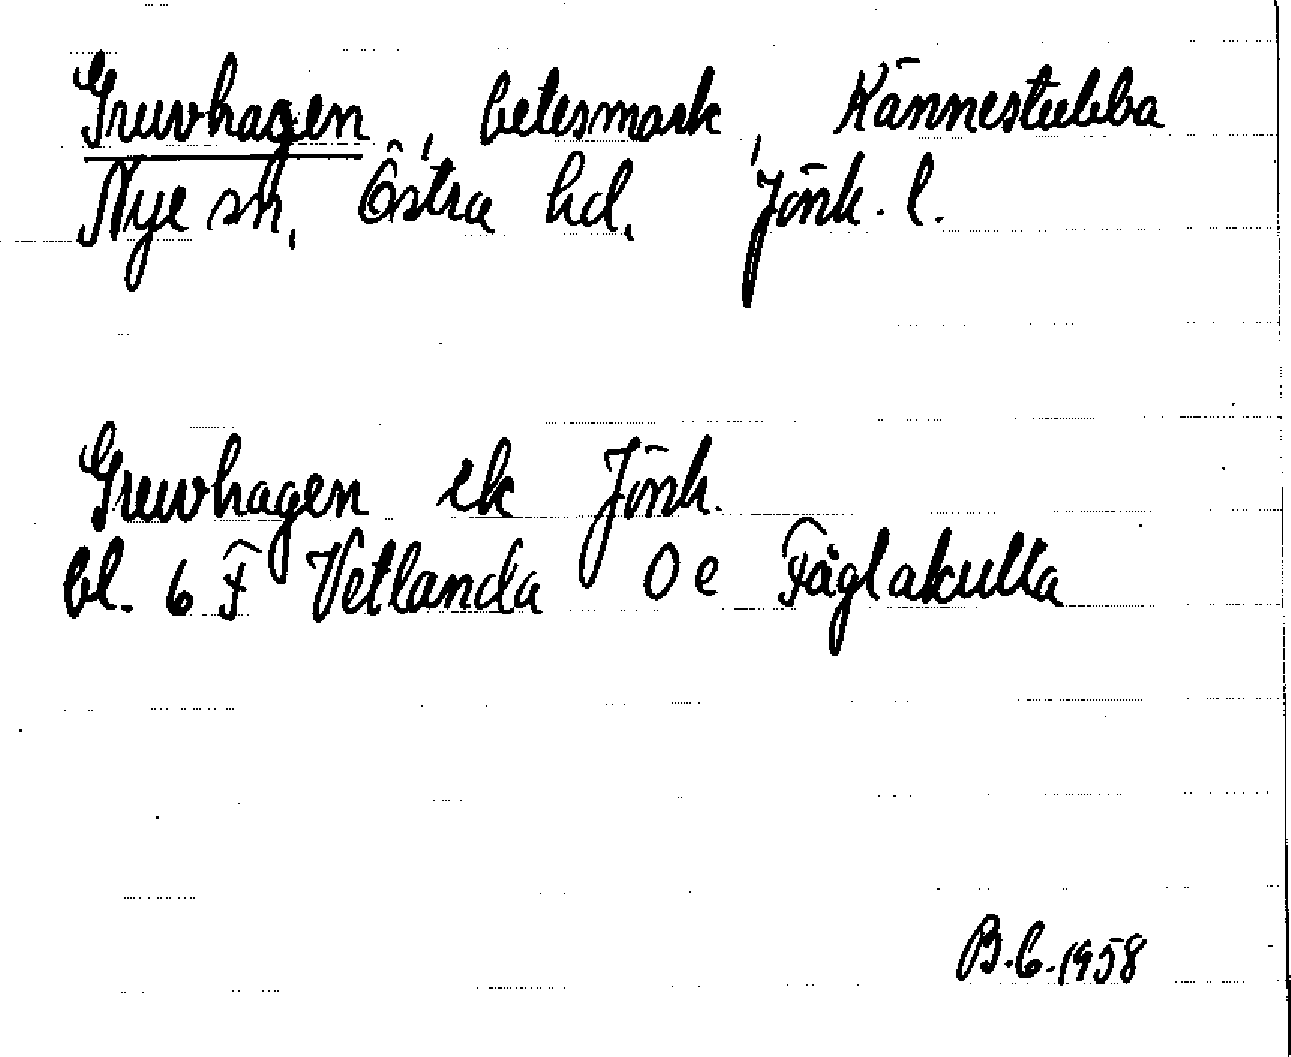 Gruvhagen, betesmark, Kännestubba
Nye sn, Östra hd, Jönk. l.
Gruvhagen ek Jönk.
bl. 6 F Vetlanda 0 e Fåglakulla
B.C. 1958